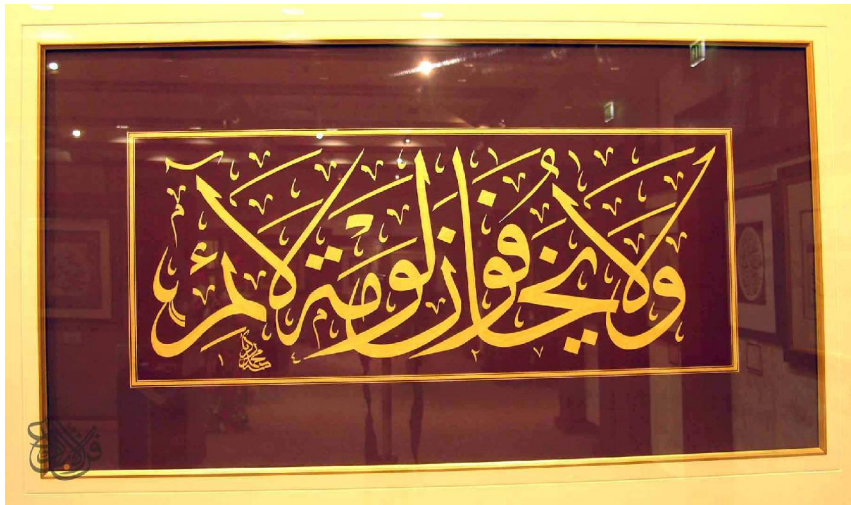 ولا يخافون لومة لائم
١٤٢٧